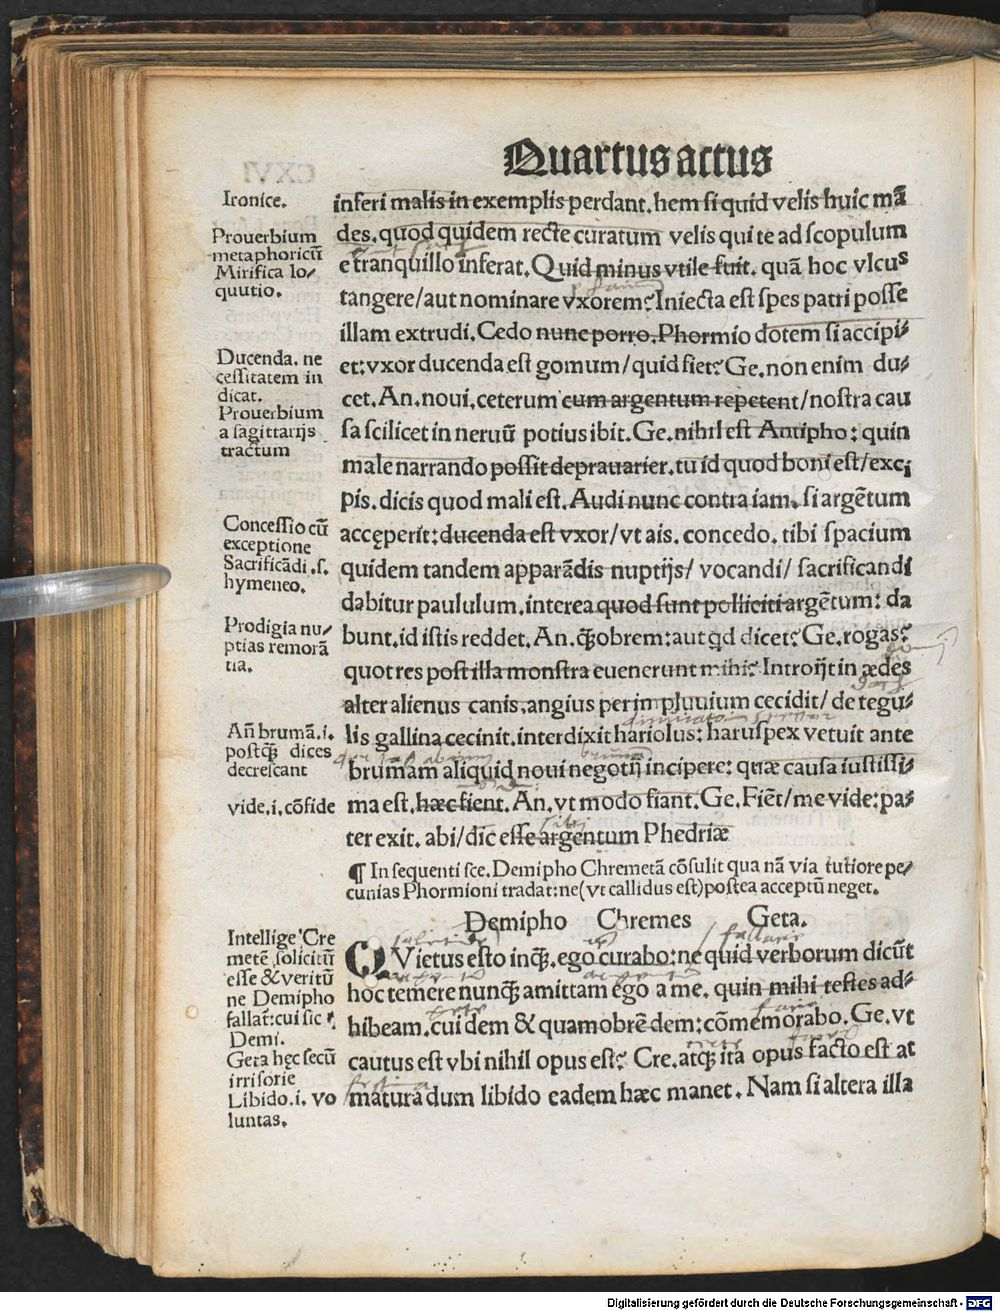 Quartus actus
Ironice.
inferi malis in exemplis perdant. hem si quid velis huic mā
Prouerbium
metaphoricū
Mirifica lo⸗
quutio.
des. quod quidem recte curatum velis qui te ad scopulum
e tranquillo inferat. Quid minus vtile fuit. quā hoc vlcus
tangere/aut nominare vxorem? Iniecta est spes patri posse
illam extrudi. Cedo nunc porro. Phormio dotem si accipi⸗
Ducenda. ne
cessitatem in
dicat.
Prouerbium
a sagittarijs
tractum
et: vxor ducenda est gomum/quid fiet? Ge. non enim du⸗
cet. An. noui. ceterum cum argentum repetent/nostra cau
sa scilicet in neruū potius ibit. Ge. nihil est Antipho: quin
male narrando possit deprauarier. tu id quod boni est/exci
pis. dicis quod mali est. Audi nunc contra iam. si argētum
Concessio cū
exceptione
Sacrificādi .s.
hymeneo.
accęperit: ducenda est vxor/vt ais. concedo. tibi spacium
quidem tandem apparādis nuptijs/ vocandi/ sacrificandi
dabitur paululum. interea quod sunt polliciti argētum: da
Prodigia nu⸗
ptias remorā
tia.
bunt. id istis reddet. An. q̄obrem: aut qd dicet? Ge. rogas?
quot res post illa monstra euenerunt mihi? Introijt in ædes
alter alienus canis, angius per im pluuium cecidit/ de tegu⸗
Añ brumā .i.
postq̄ dies
decrescant
lis gallina cecinit. interdixit hariolus: haruspex vetuit ante
brumam aliquid noui negotij incipere: quæ causa iustissi⸗
vide .i. cōfide
ma est. hæc fient. An. vt modo fiant. Ge. Fiēt/me vide: pa⸗
ter exit. abi/dic esse argentum Phedriæ
¶ In sequenti sce. Demipho Chremetā cōsulit qua nā via tutiore pe⸗
cunias Phormioni tradat: ne (vt callidus est) postea acceptū neget.
Demipho Chremes Geta.
Intellige Cre
metē solicitū
esse & veritū
ne Demipho
fallat: cui sic r̄
Demi.
Geta hęc secū
irrisorie
Libido .i. vo
luntas.
QVietus esto inq̄. ego curabo: ne quid verborum dicūt
hoc temere nunq̄ amittam ego a me. quin mihi testes ad⸗
hibeam. cui dem & quamobrē dem: cōmemorabo. Ge. vt
cautus est vbi nihil opus est? Cre. atq̄ ita opus facto est at
matura dum libido eadem hæc manet. Nam si altera illa
Digitalisierung gefördert durch die Deutsche Forschungsgemeinschaft - DFG